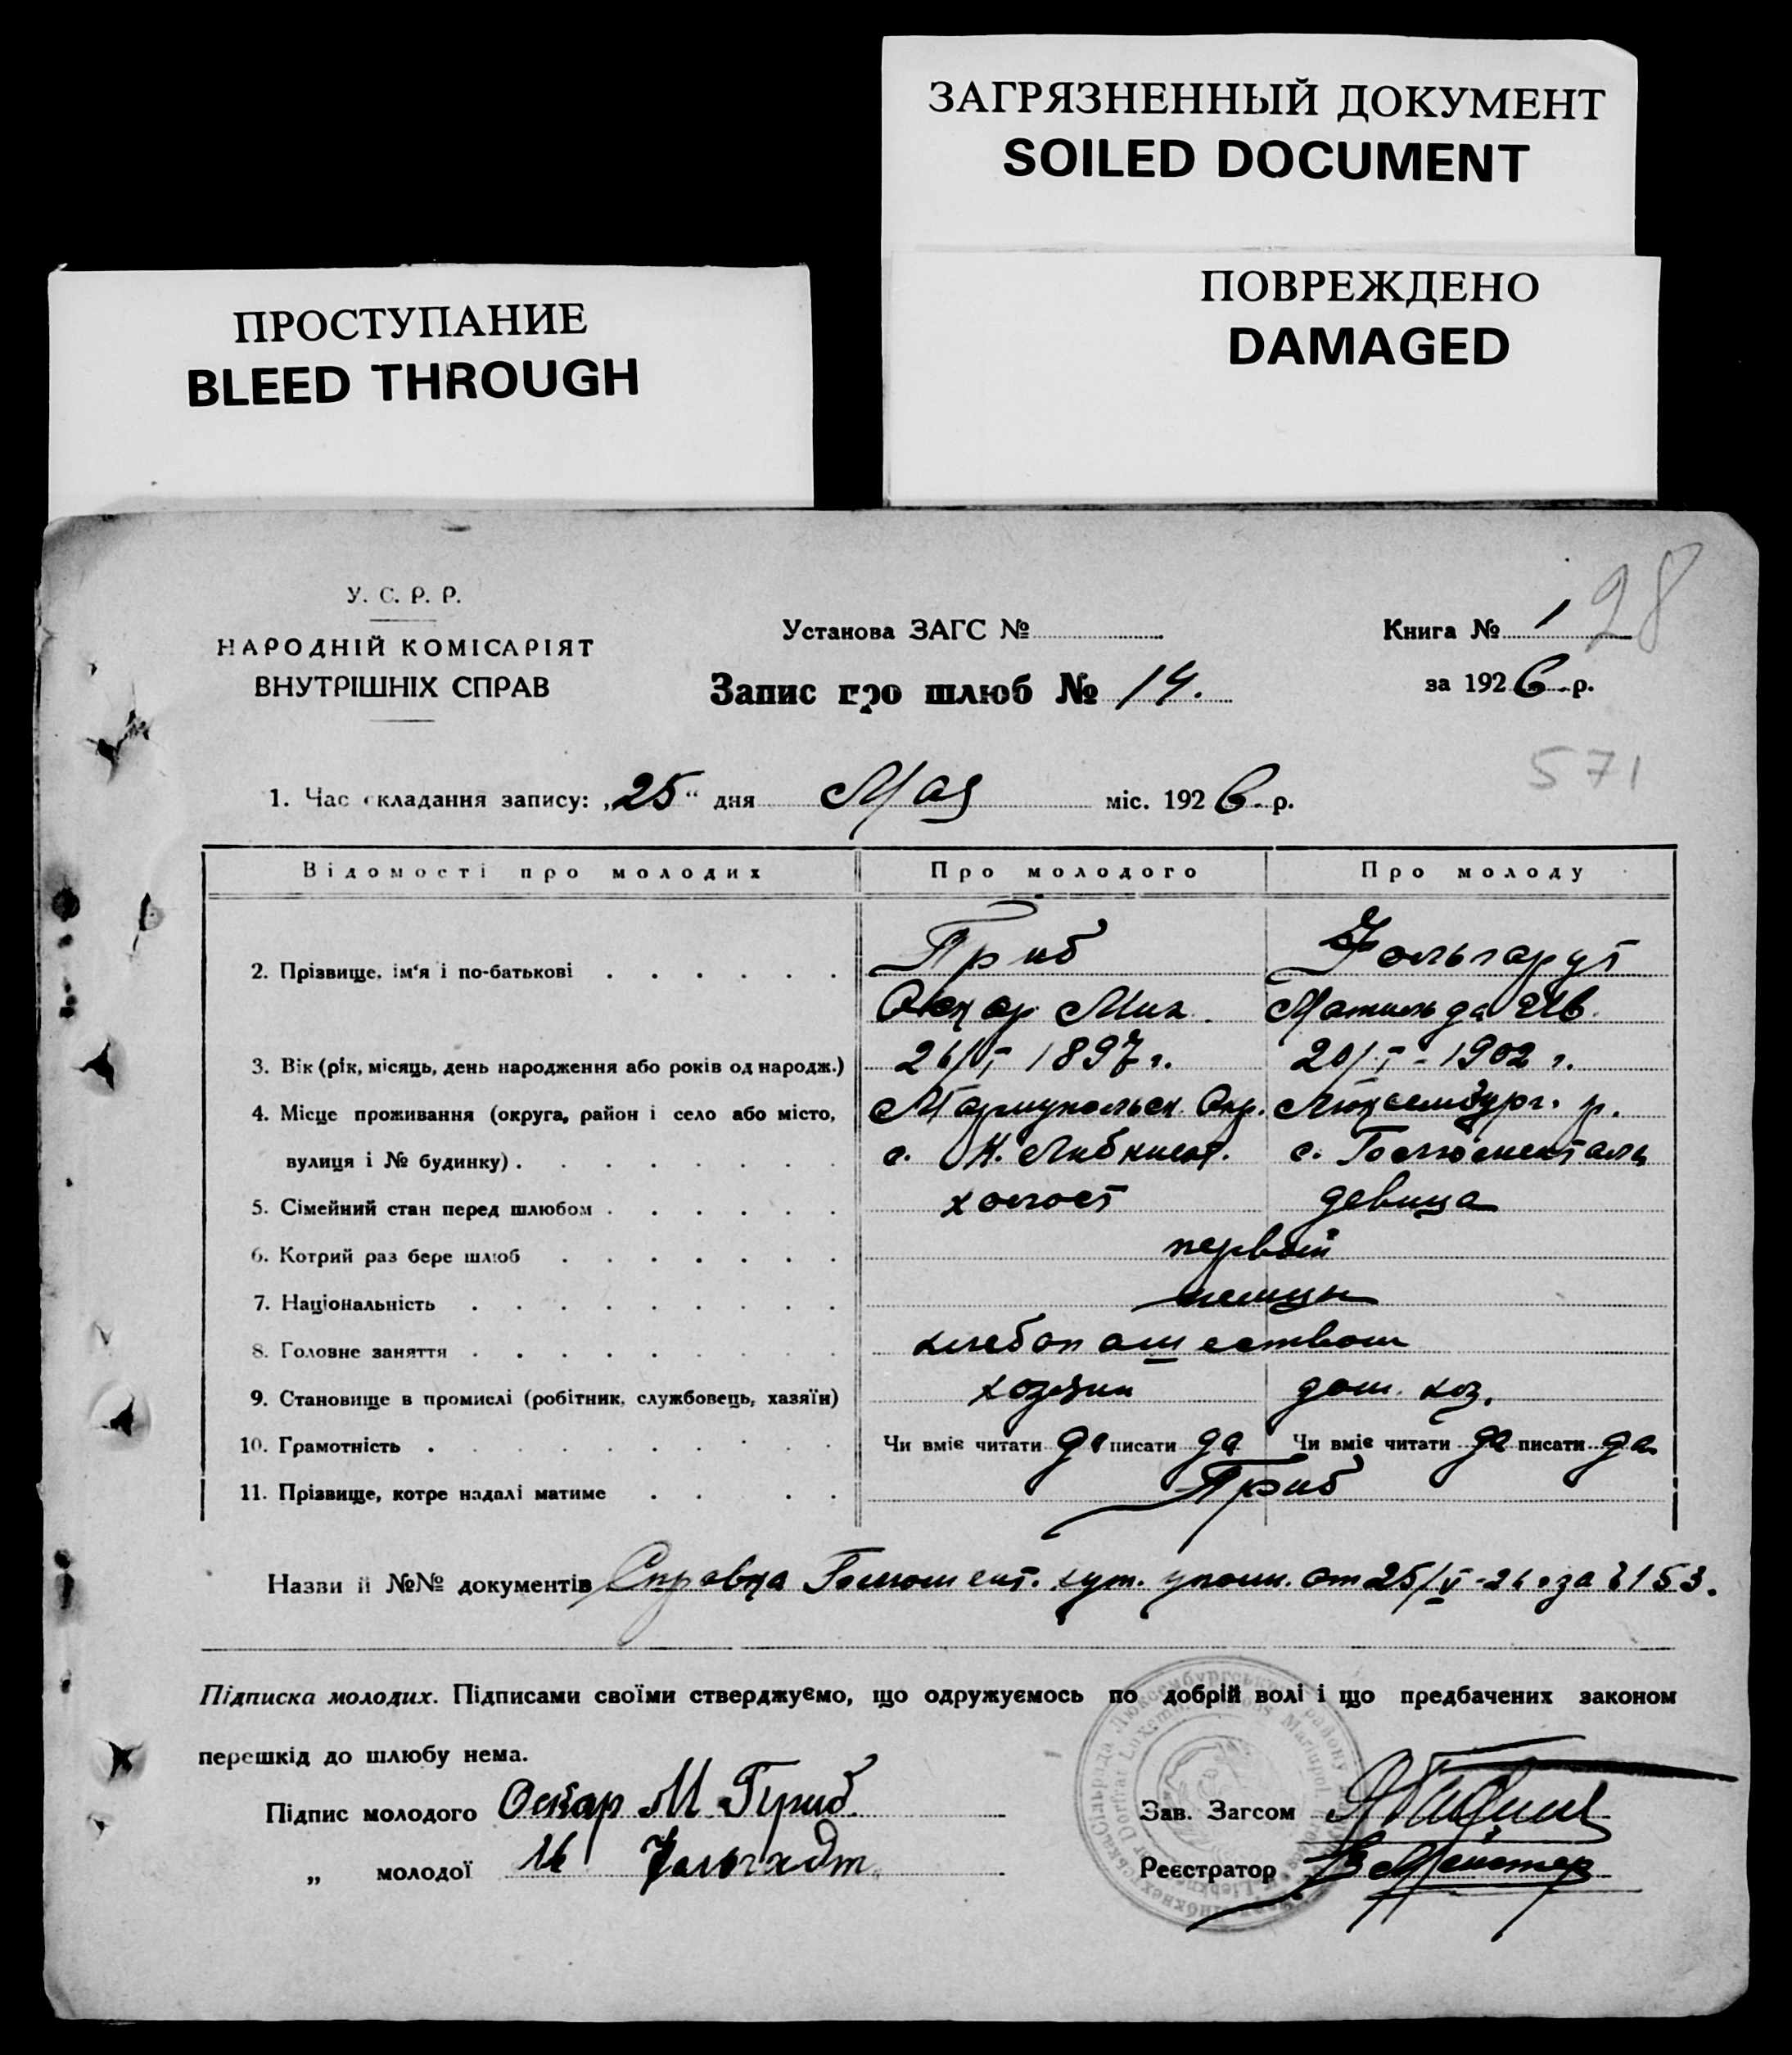 ЗАГРЯЗНЕННЫЙ ДОКУМЕНТ
SOILED DOCUMENT
ПОВРЕЖДЕНО
DAMAGED
ПРОСТУПАНИЕ
BLEED THROUGH
98
У. С. Р. Р.
НАРОДНІЙ КОМІСАРІЯТ
ВНУТРІШНІХ СПРАВ
Установа ЗАГС №
Книга № 1
Запис про шлюб № 14.
за 1926 р.
571
1. Час складання запису: „25“ дня Мая міс. 1926 р.
Відомості про молодих Про молодого Про молоду
2. Прізвище, ім'я і по-батькові Гриб Фольгардт
Оскар Мих. Матильда Ив.
3. Вік (рік, місяць, день народження або років од народж.) 1897 г. 1902 г.
4. Місце проживання (округа, район і село або місто, Мариупольск. Окр. Люксембург. р.
вулиця і № будинку) с. К. Либкнехт. с.
5. Сімейний стан перед шлюбом холост девица
6. Котрий раз бере шлюб первый
7. Національність немцы
8. Головне заняття хлебопашеством
9. Становище в промислі (робітник, службовець, хазяїн) хозяин дом. хоз.
10. Грамотність Чи вміє читати да писати да Чи вміє читати да писати да
11. Прізвище, котре надалі матиме Гриб
Назви й №№ документів Справка хут. уполн. от 25/V-26 г за 153.
Підписка молодих. Підписами своїми стверджуємо, що одружуємось по добрій волі і що предбачених законом
перешкід до шлюбу нема.
Підпис молодого Оскар М Гриб
Зав. Загсом
„ молодої М
Реєстратор